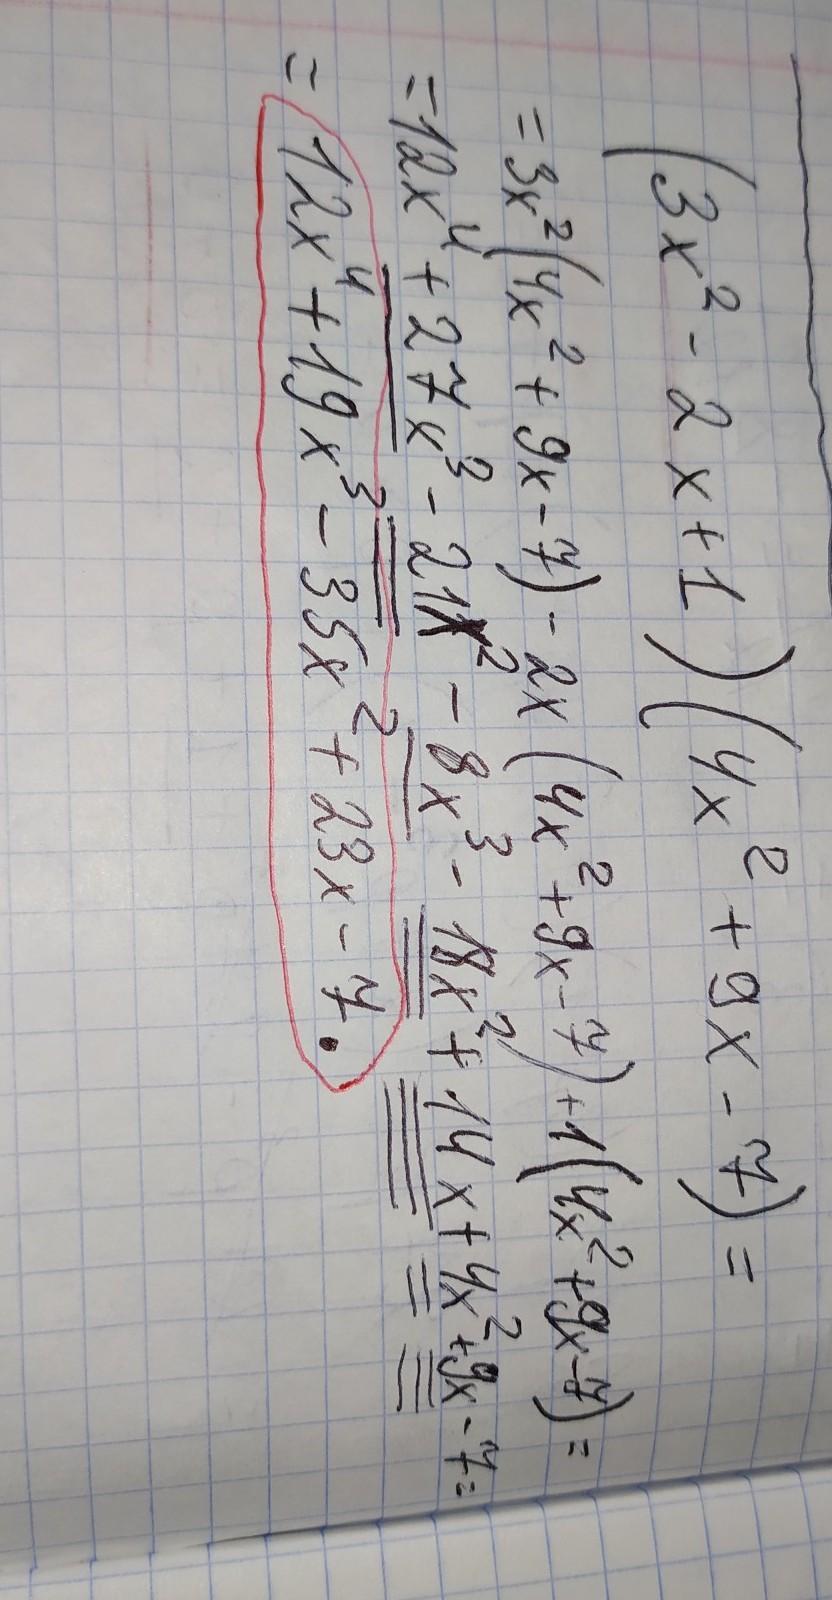 (3x² - 2x + 1)(4x² + 9x - 7) =
= 3x²(4x² + 9x - 7) - 2x(4x² + 9x - 7) + 1(4x² + 9x - 7) =
= 12x⁴ + 27x³ - 21x² - 8x³ - 18x² + 14x + 4x² + 9x - 7 =
= 12x⁴ + 19x³ - 35x² + 23x - 7.